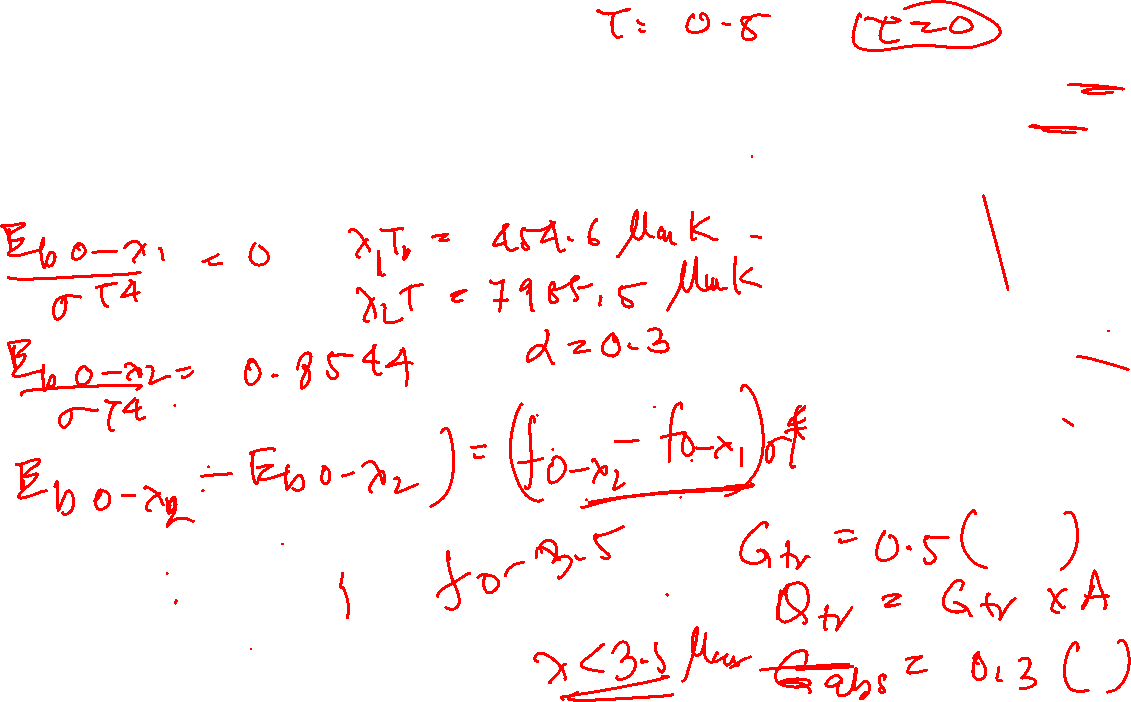 τ = 0.5 τ = 0
E_{b 0-λ1} / σT4 = 0 λ₁T₁ = 454.6 μm K
λ₂T = 7955.5 μm K
α = 0.3
E_{b 0-λ2} / σT4 = 0.8544
E_{b 0-λ2} - E_{b 0-λ2}) = (f_{0-λ2} - f_{0-λ1}) σ
f 0-3.5
G_{tr} = 0.5 ( )
Q_{tr} = G_{tr} x A
λ < 3.5 μm G_{abs} = 0.3 ( )